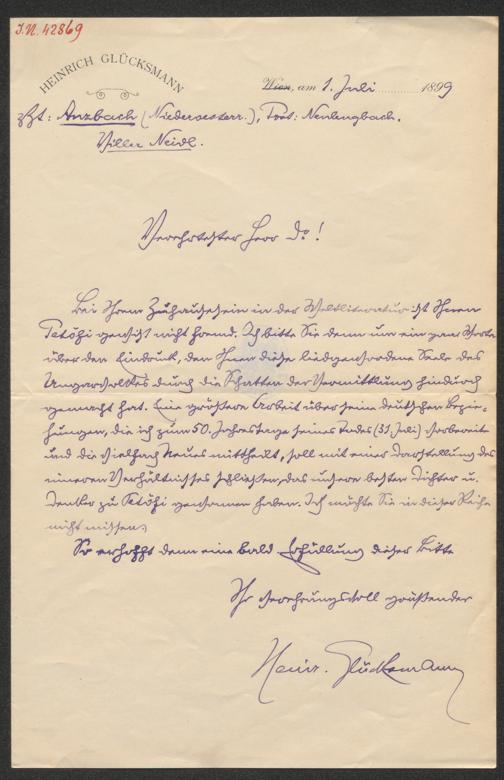 I.N. 42869
HEINRICH GLÜCKSMANN
Wien, am 1. Juli 1899
zZt: Anzbach (Niederoesterr.), Post: Neulengbach.
Villa Neidl.
Verehrtester Herr Dr!
Bei Ihrem Zuhausesein in der Weltliteratur ist Ihnen
Petöfi gewiß nicht fremd. Ich bitte Sie denn um ein paar Worte
über den Eindruck, den Ihnen diese liedgewordene Seele des
Ungarvolkes durch die Schatten der Vermittlung hindurch
gemacht hat. Eine größere Arbeit über seine deutschen Bezie-
hungen, die ich zum 50. Jahrestage seines Todes (31. Juli) vorbereite
und die vielfach Neues mittheilt, soll mit einer Darstellung des
inneren Verhältnisses schließen, das unsere besten Dichter u.
Denker zu Petöfi gewonnen haben. Ich möchte Sie in dieser Reihe
nicht missen.
So erhofft denn eine bald Erfüllung dieser Bitte
Ihr verehrungsvoll grüßender
Heinr. Glücksmann